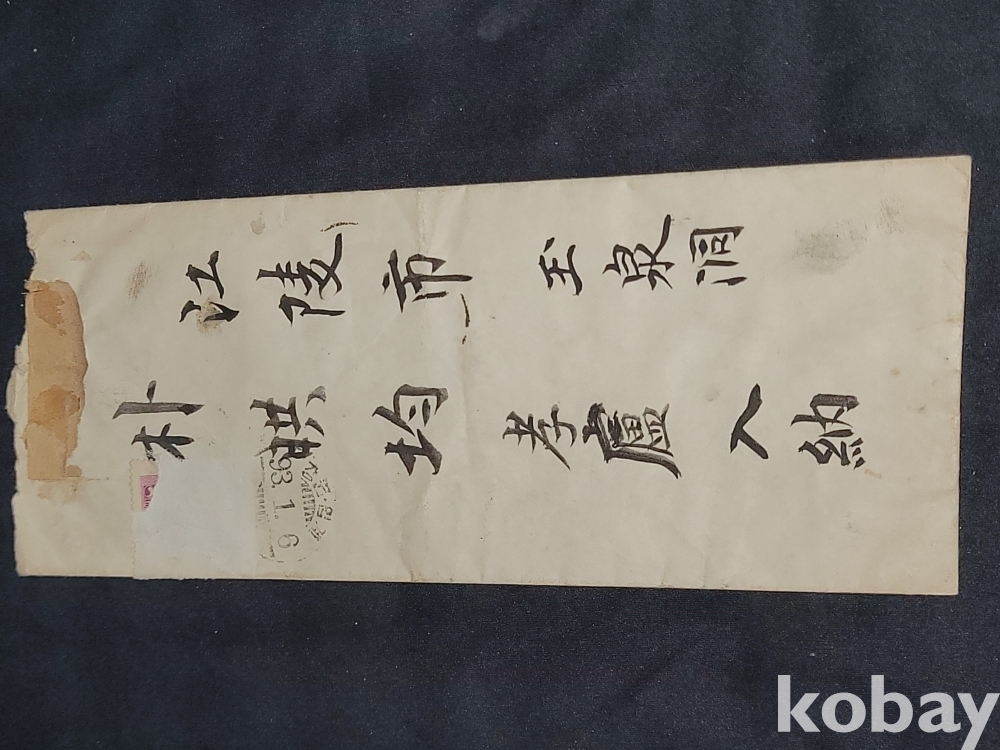 江陵市 玉泉洞
朴 琪 均 孝廬 入 納
93. 1. 6
kobay